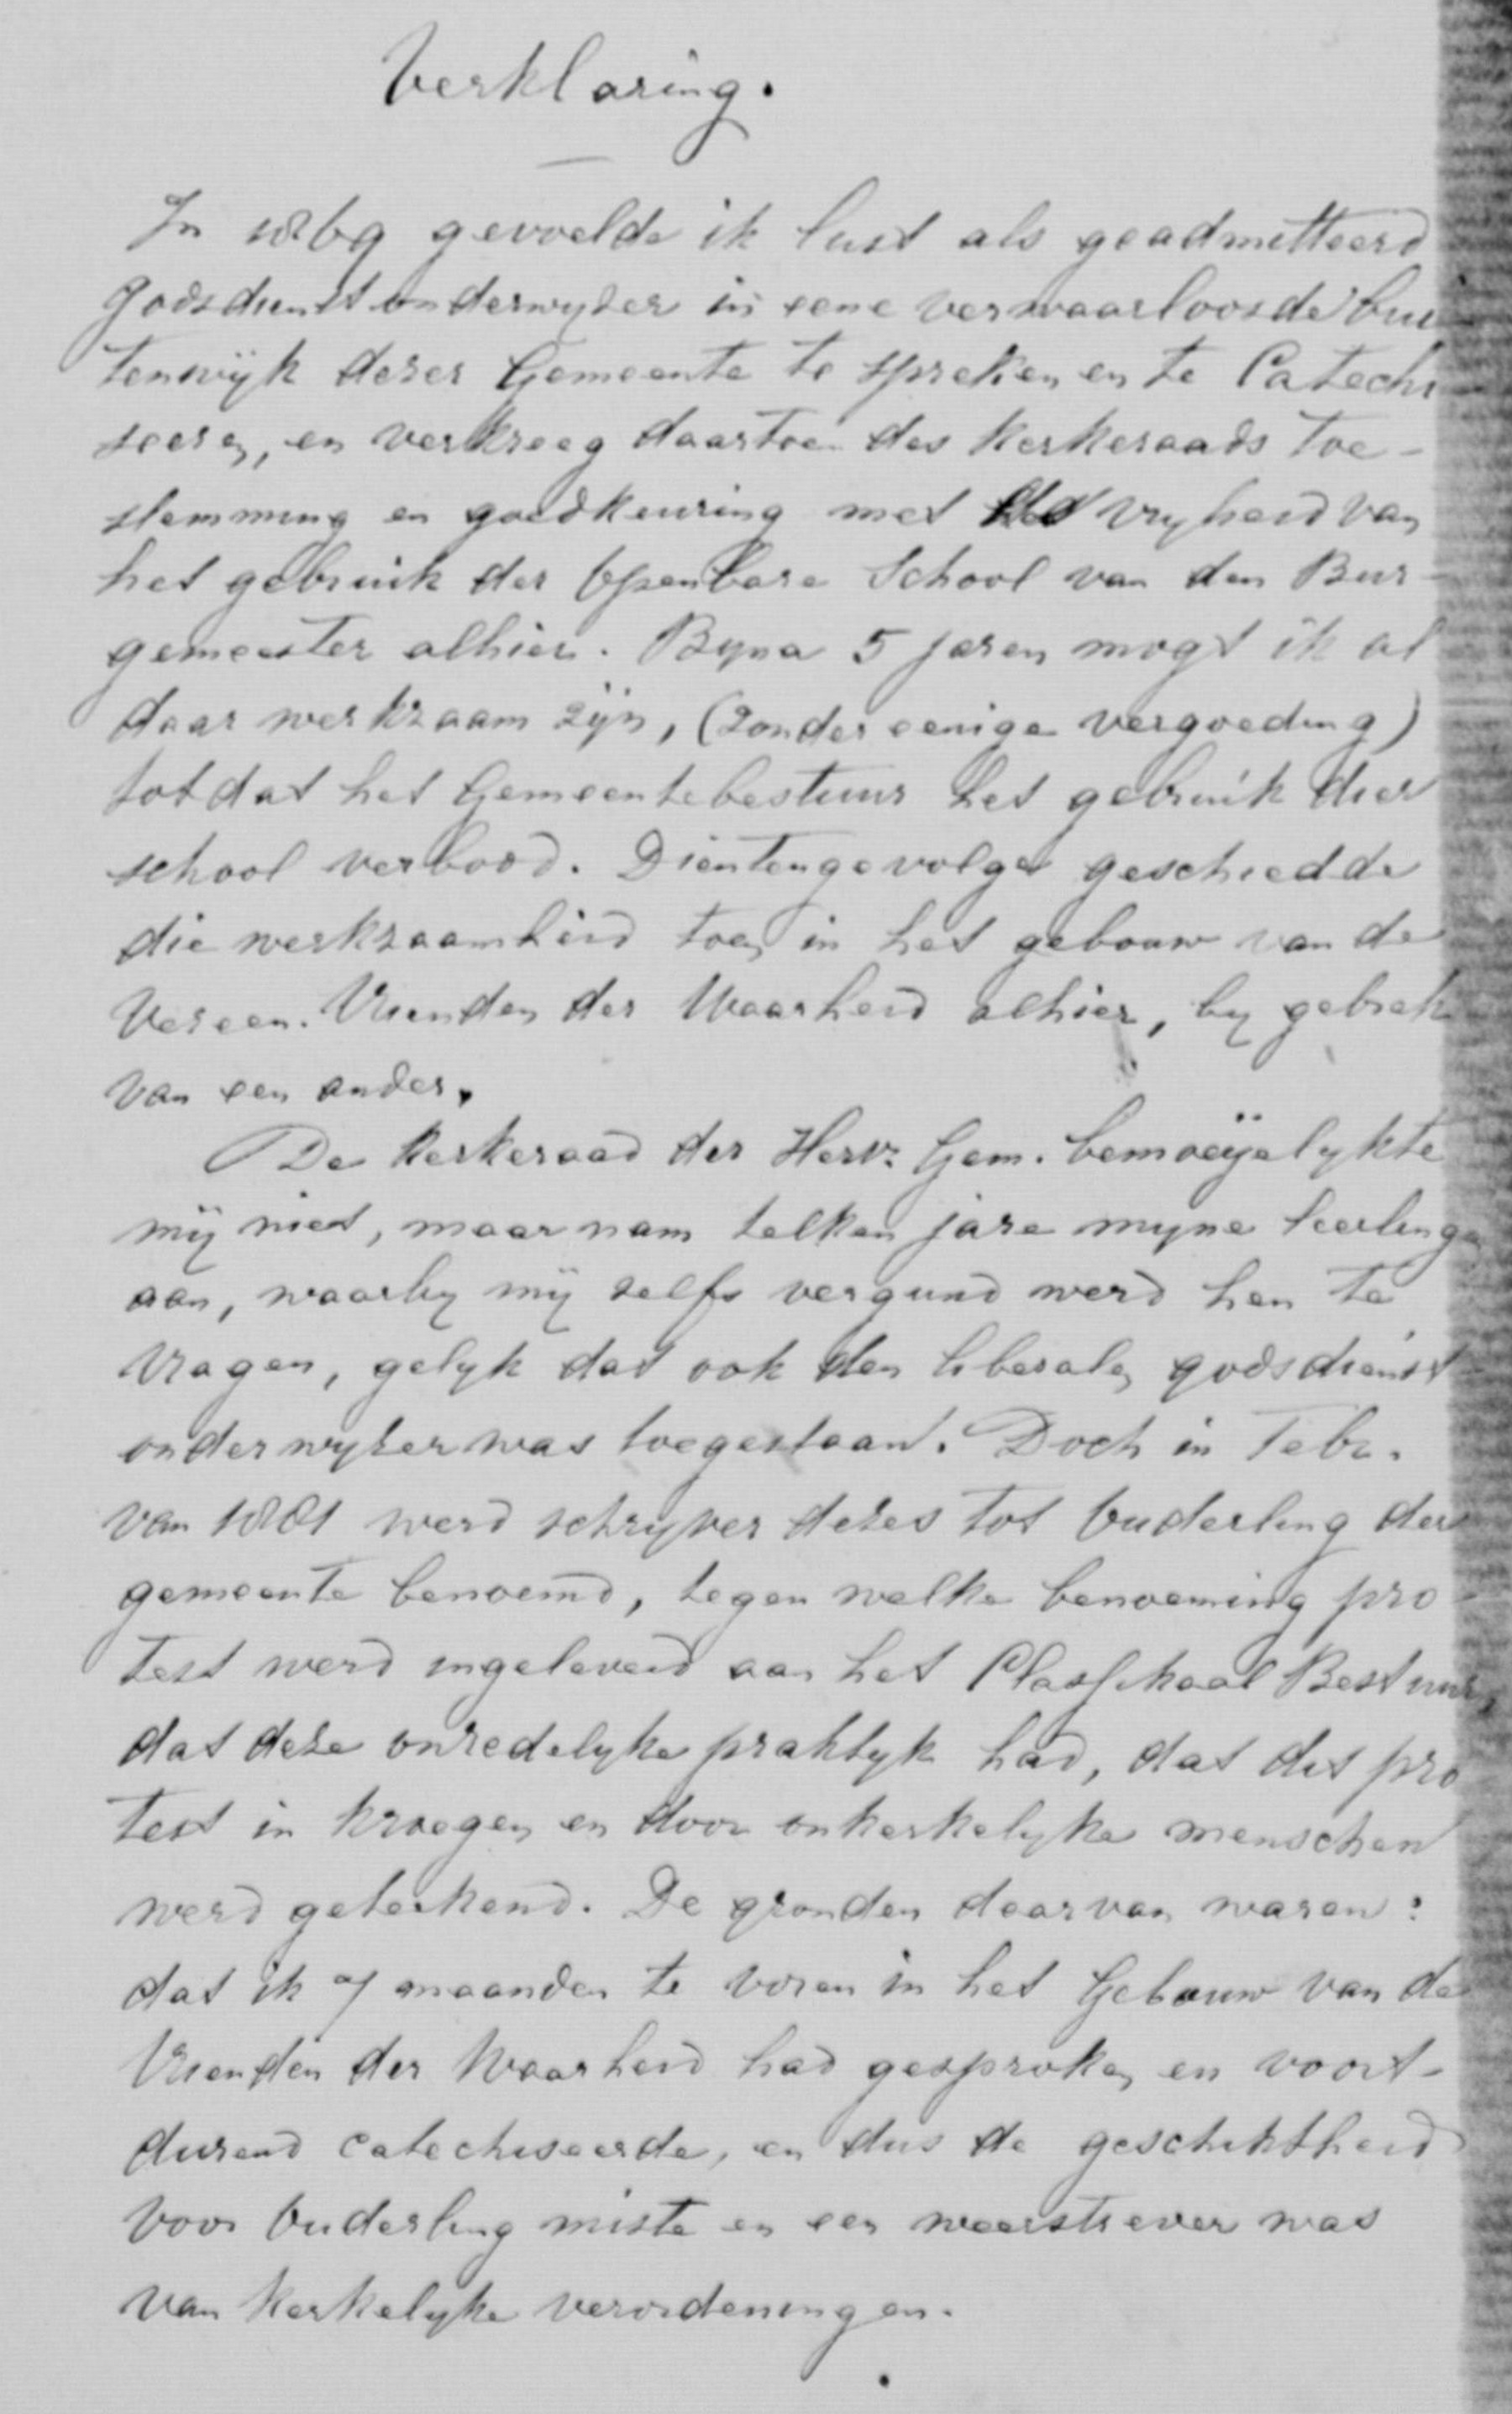 Verklaring.
In 1869 gevoelde ik lust als geadmitteerd
Godsdienstonderwyzer in eene verwaarloosde bui
tenwijk dezer Gemeente te spreken en te Catechi
seeren, en verkreeg daartoe des Kerkeraads toe-
stemming en goedkeuring met vryheid van
het gebruik der Openbare School van den Bur-
gemeester alhier. Byna 5 jaren mogt ik al
daar werkzaam zijn, (zonder eenige vergoeding)
totdat het Gemeentebestuur het gebruik dier
school verbood. Dientengevolge geschiedde
die werkzaamheid toen in het gebouw van de
Vereen. Vrienden der Waarheid alhier, by gebrek
van een ander.
De Kerkeraad der Herv. Gem. bemoeijelykte
mij niet, maar nam telken jare myne leerlingen
aan, waarby mij zelfs vergund werd hen te
vragen, gelyk dat ook den liberalen godsdienst
onderwyzer was toegestaan. Doch in Febr.
van 1881 werd schryver dezes tot Ouderling der
gemeente benoemd, tegen welke benoeming pro-
test werd ingeleverd aan het Classikaal Bestuur,
dat deze onredelyke praktyk had, dat dit pro
test in kroegen en door onkerkelyke menschen
werd geteekend. De gronden daarvan waren:
dat ik 7 maanden te voren in het Gebouw van de
Vrienden der Waarheid had gesproken en voort-
durend catechiseerde, en dus de geschiktheid
voor Ouderling miste en een weerstrever was
van Kerkelyke verordeningen.